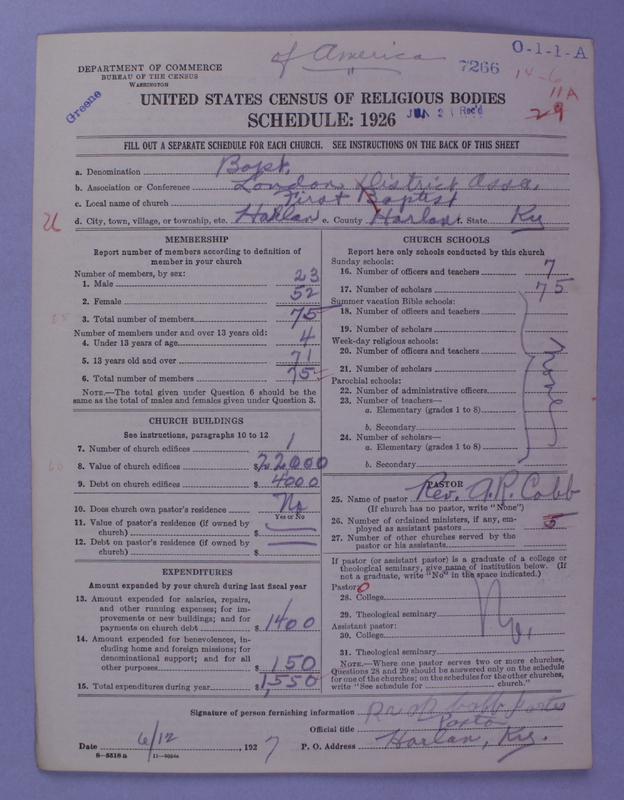 of America
7266
O-1-1-A
14-6
11A
29
DEPARTMENT OF COMMERCE
BUREAU OF THE CENSUS
WASHINGTON
Greene
UNITED STATES CENSUS OF RELIGIOUS BODIES
SCHEDULE: 1926
Rec'd
FILL OUT A SEPARATE SCHEDULE FOR EACH CHURCH. SEE INSTRUCTIONS ON THE BACK OF THIS SHEET
a. Denomination Bapt.
b. Association or Conference London District Assa.
c. Local name of church First Baptist
d. City, town, village, or township, etc. Harlan e. County Harlan f. State Ky
MEMBERSHIP
Report number of members according to definition of
member in your church
Number of members, by sex:
1. Male 23
2. Female 52
3. Total number of members 75
Number of members under and over 13 years old:
4. Under 13 years of age 4
5. 13 years old and over 71
6. Total number of members 75
NOTE.—The total given under Question 6 should be the
same as the total of males and females given under Question 3.
CHURCH BUILDINGS
See instructions, paragraphs 10 to 12
7. Number of church edifices 1
8. Value of church edifices $ 22000
9. Debt on church edifices $ 4000
10. Does church own pastor's residence No
Yes or No
11. Value of pastor's residence (if owned by
church) $
12. Debt on pastor's residence (if owned by
church) $
EXPENDITURES
Amount expended by your church during last fiscal year
13. Amount expended for salaries, repairs,
and other running expenses; for im-
provements or new buildings; and for
payments on church debt $ 1400
14. Amount expended for benevolences, in-
cluding home and foreign missions; for
denominational support; and for all
other purposes $ 150
15. Total expenditures during year $ 1,550
CHURCH SCHOOLS
Report here only schools conducted by this church
Sunday schools:
16. Number of officers and teachers 7
17. Number of scholars 75
Summer vacation Bible schools:
18. Number of officers and teachers
19. Number of scholars
Week-day religious schools:
20. Number of officers and teachers
21. Number of scholars
Parochial schools:
22. Number of administrative officers
23. Number of teachers—
a. Elementary (grades 1 to 8)
b. Secondary
24. Number of scholars—
a. Elementary (grades 1 to 8)
b. Secondary
none
PASTOR
25. Name of pastor Rev. A.R. Cobb
(If church has no pastor, write "None")
26. Number of ordained ministers, if any, em-
ployed as assistant pastors 5
27. Number of other churches served by the
pastor or his assistants
If pastor (or assistant pastor) is a graduate of a college or
theological seminary, give name of institution below. (If
not a graduate, write "No" in the space indicated.)
Pastor: 0
28. College
29. Theological seminary
Assistant pastor:
30. College
No.
31. Theological seminary
NOTE.—Where one pastor serves two or more churches,
Questions 28 and 29 should be answered only on the schedule
for one of the churches; on the schedules for the other churches,
write "See schedule for church."
Signature of person furnishing information Cobb
Official title Pastor
Date 6/12, 1927 P. O. Address Harlan, Ky.
8-5518a